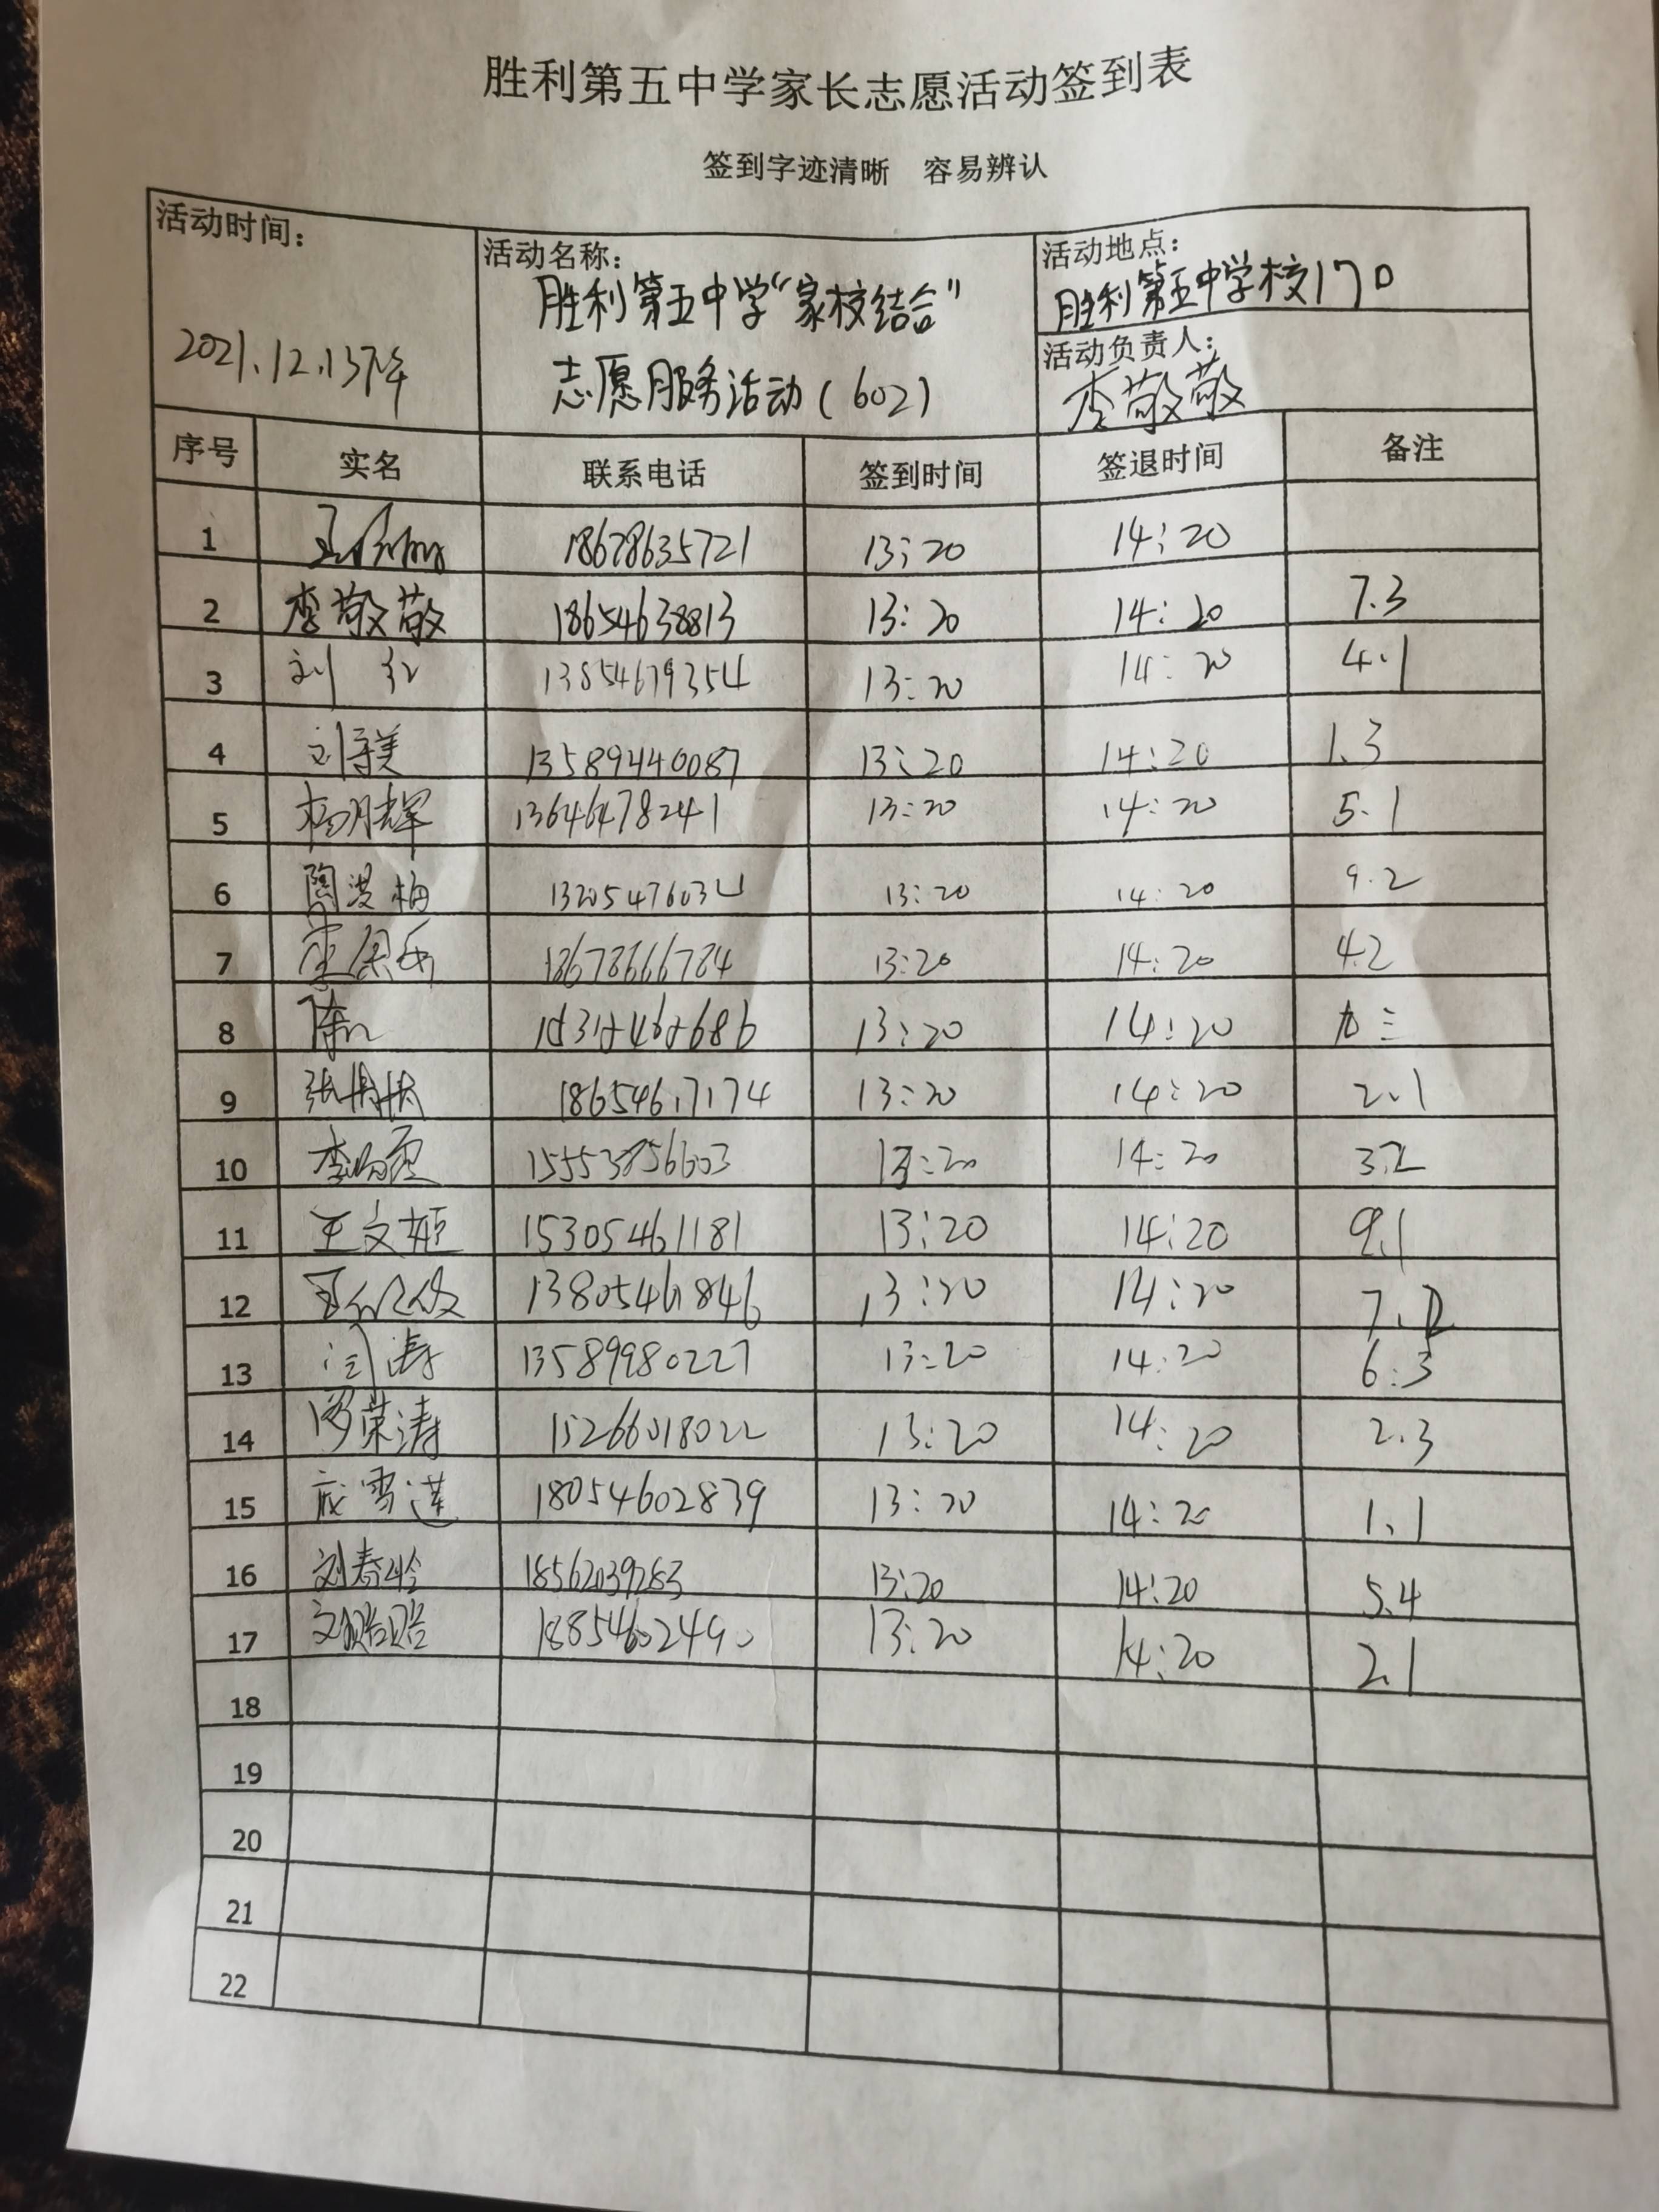 胜利第五中学家长志愿活动签到表
签到字迹清晰 容易辨认
活动时间：
2021.12.13下午
活动名称：
胜利第五中学“家校结合”
志愿服务活动(602)
活动地点：
胜利第五中学校门口
活动负责人：
李敬敬
序号 实名 联系电话 签到时间 签退时间 备注
1 18678635721 13:20 14:20
2 李敬敬 18654638813 13:20 14:20 7.3
3 刘红 13854679354 13:20 14:20 4.1
4 13589440087 13:20 14:20 1.3
5 杨胜辉 13646478241 13:20 14:20 5.1
6 13:20 14:20 9.2
7 18678666784 13:20 14:20 4.2
8 13:20 14:20
9 18654617174 13:20 14:20 2.1
10 13:20 14:20 3.2
11 王文姬 15305461181 13:20 14:20 9.1
12 13805461846 13:20 14:20
13 闫涛 13589980227 13:20 14:20 6.3
14 罗荣涛 15266018022 13:20 14:20 2.3
15 18054602839 13:20 14:20 1.1
16 刘春玲 18562039283 13:20 14:20 5.4
17 18854602490 13:20 14:20 2.1
18
19
20
21
22